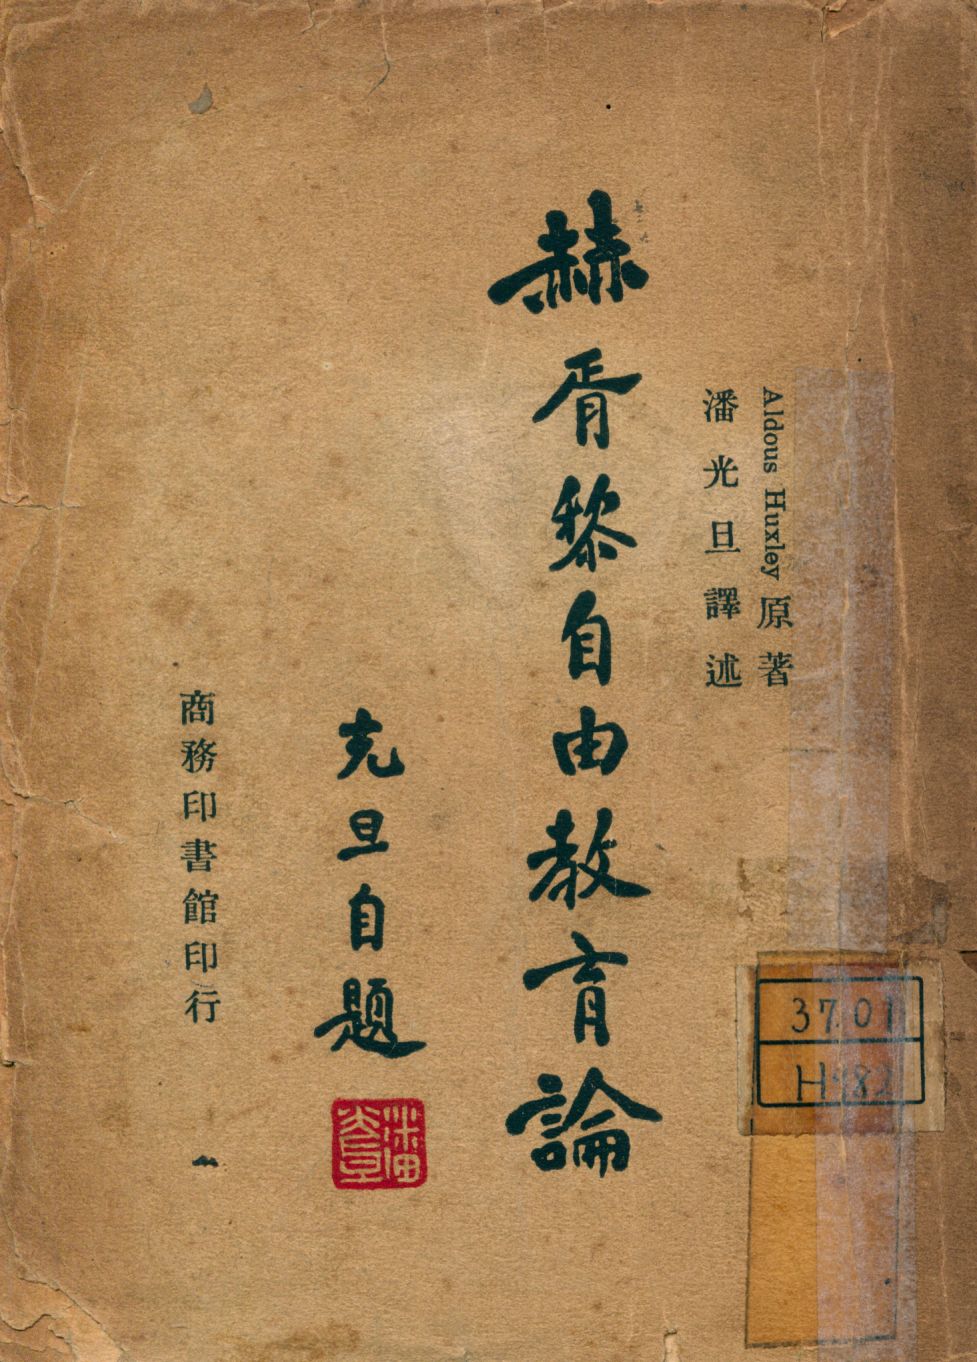 Aldous Huxley 原著
潘光旦譯述
赫胥黎自由教育論
光旦自題
潘光旦
商務印書館印行
37.01
H982